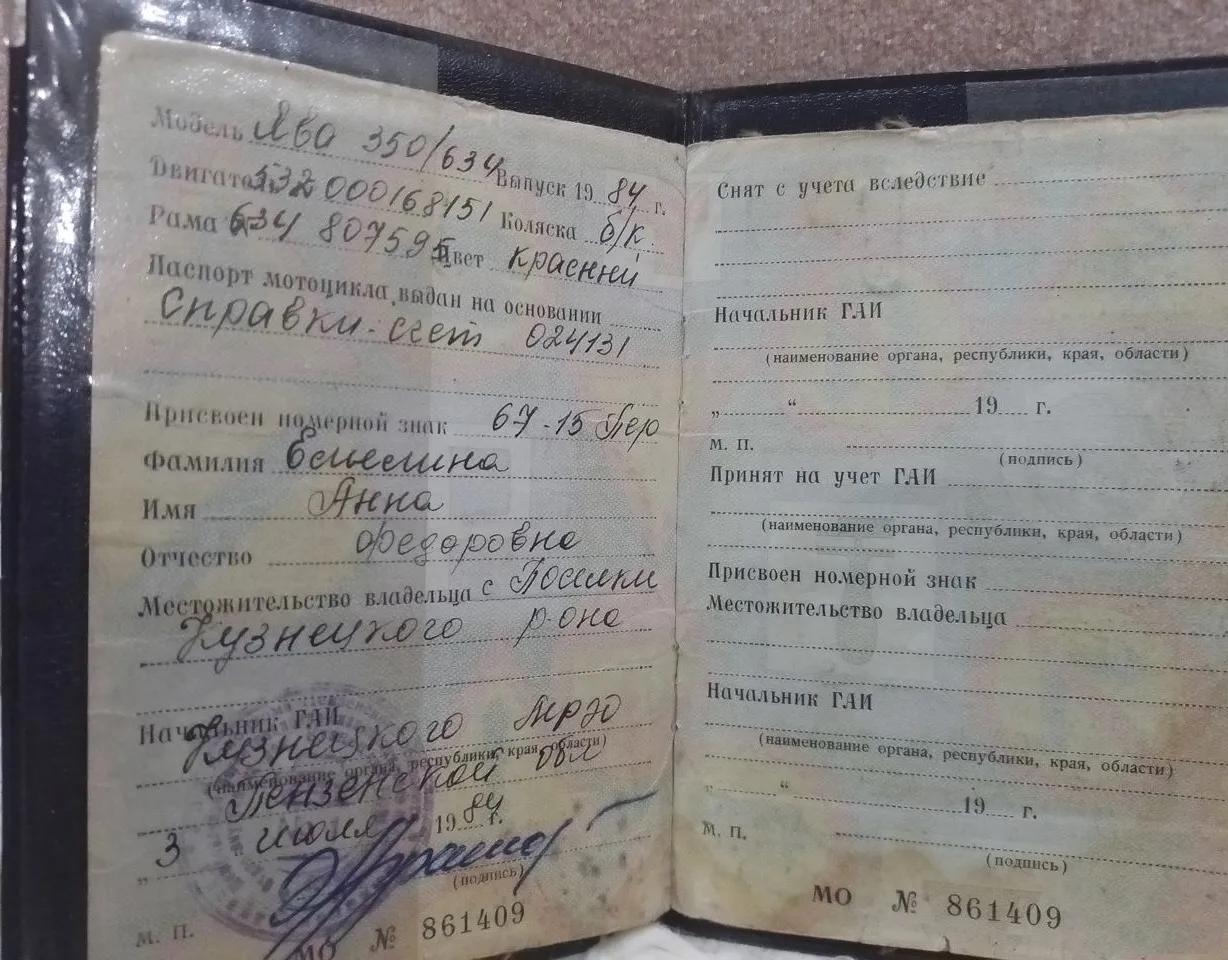 Модель Ява 350/634 Выпуск 1984 г.
Двигатель 000168151 Коляска б/к.
Рама 634 807595 Цвет красный
Паспорт мотоцикла выдан на основании
Справки-счет 024131
Присвоен номерной знак 67-15 Пер
Фамилия
Имя Анна
Отчество Федоровна
Местожительство владельца с Поселки
Кузнецкого р-она
Начальник ГАИ
Кузнецкого мрэо
(наименование органа, республики, края, области)
Пензенской обл
„ 3 июля 1984 г.
(подпись)
М. П.
МО № 861409
Снят с учета вследствие
Начальник ГАИ
(наименование органа, республики, края, области)
„ “ 19 г.
М. П.
(подпись)
Принят на учет ГАИ
(наименование органа, республики, края, области)
Присвоен номерной знак
Местожительство владельца
Начальник ГАИ
(наименование органа, республики, края, области)
„ “ 19 г.
М. П.
(подпись)
МО № 861409